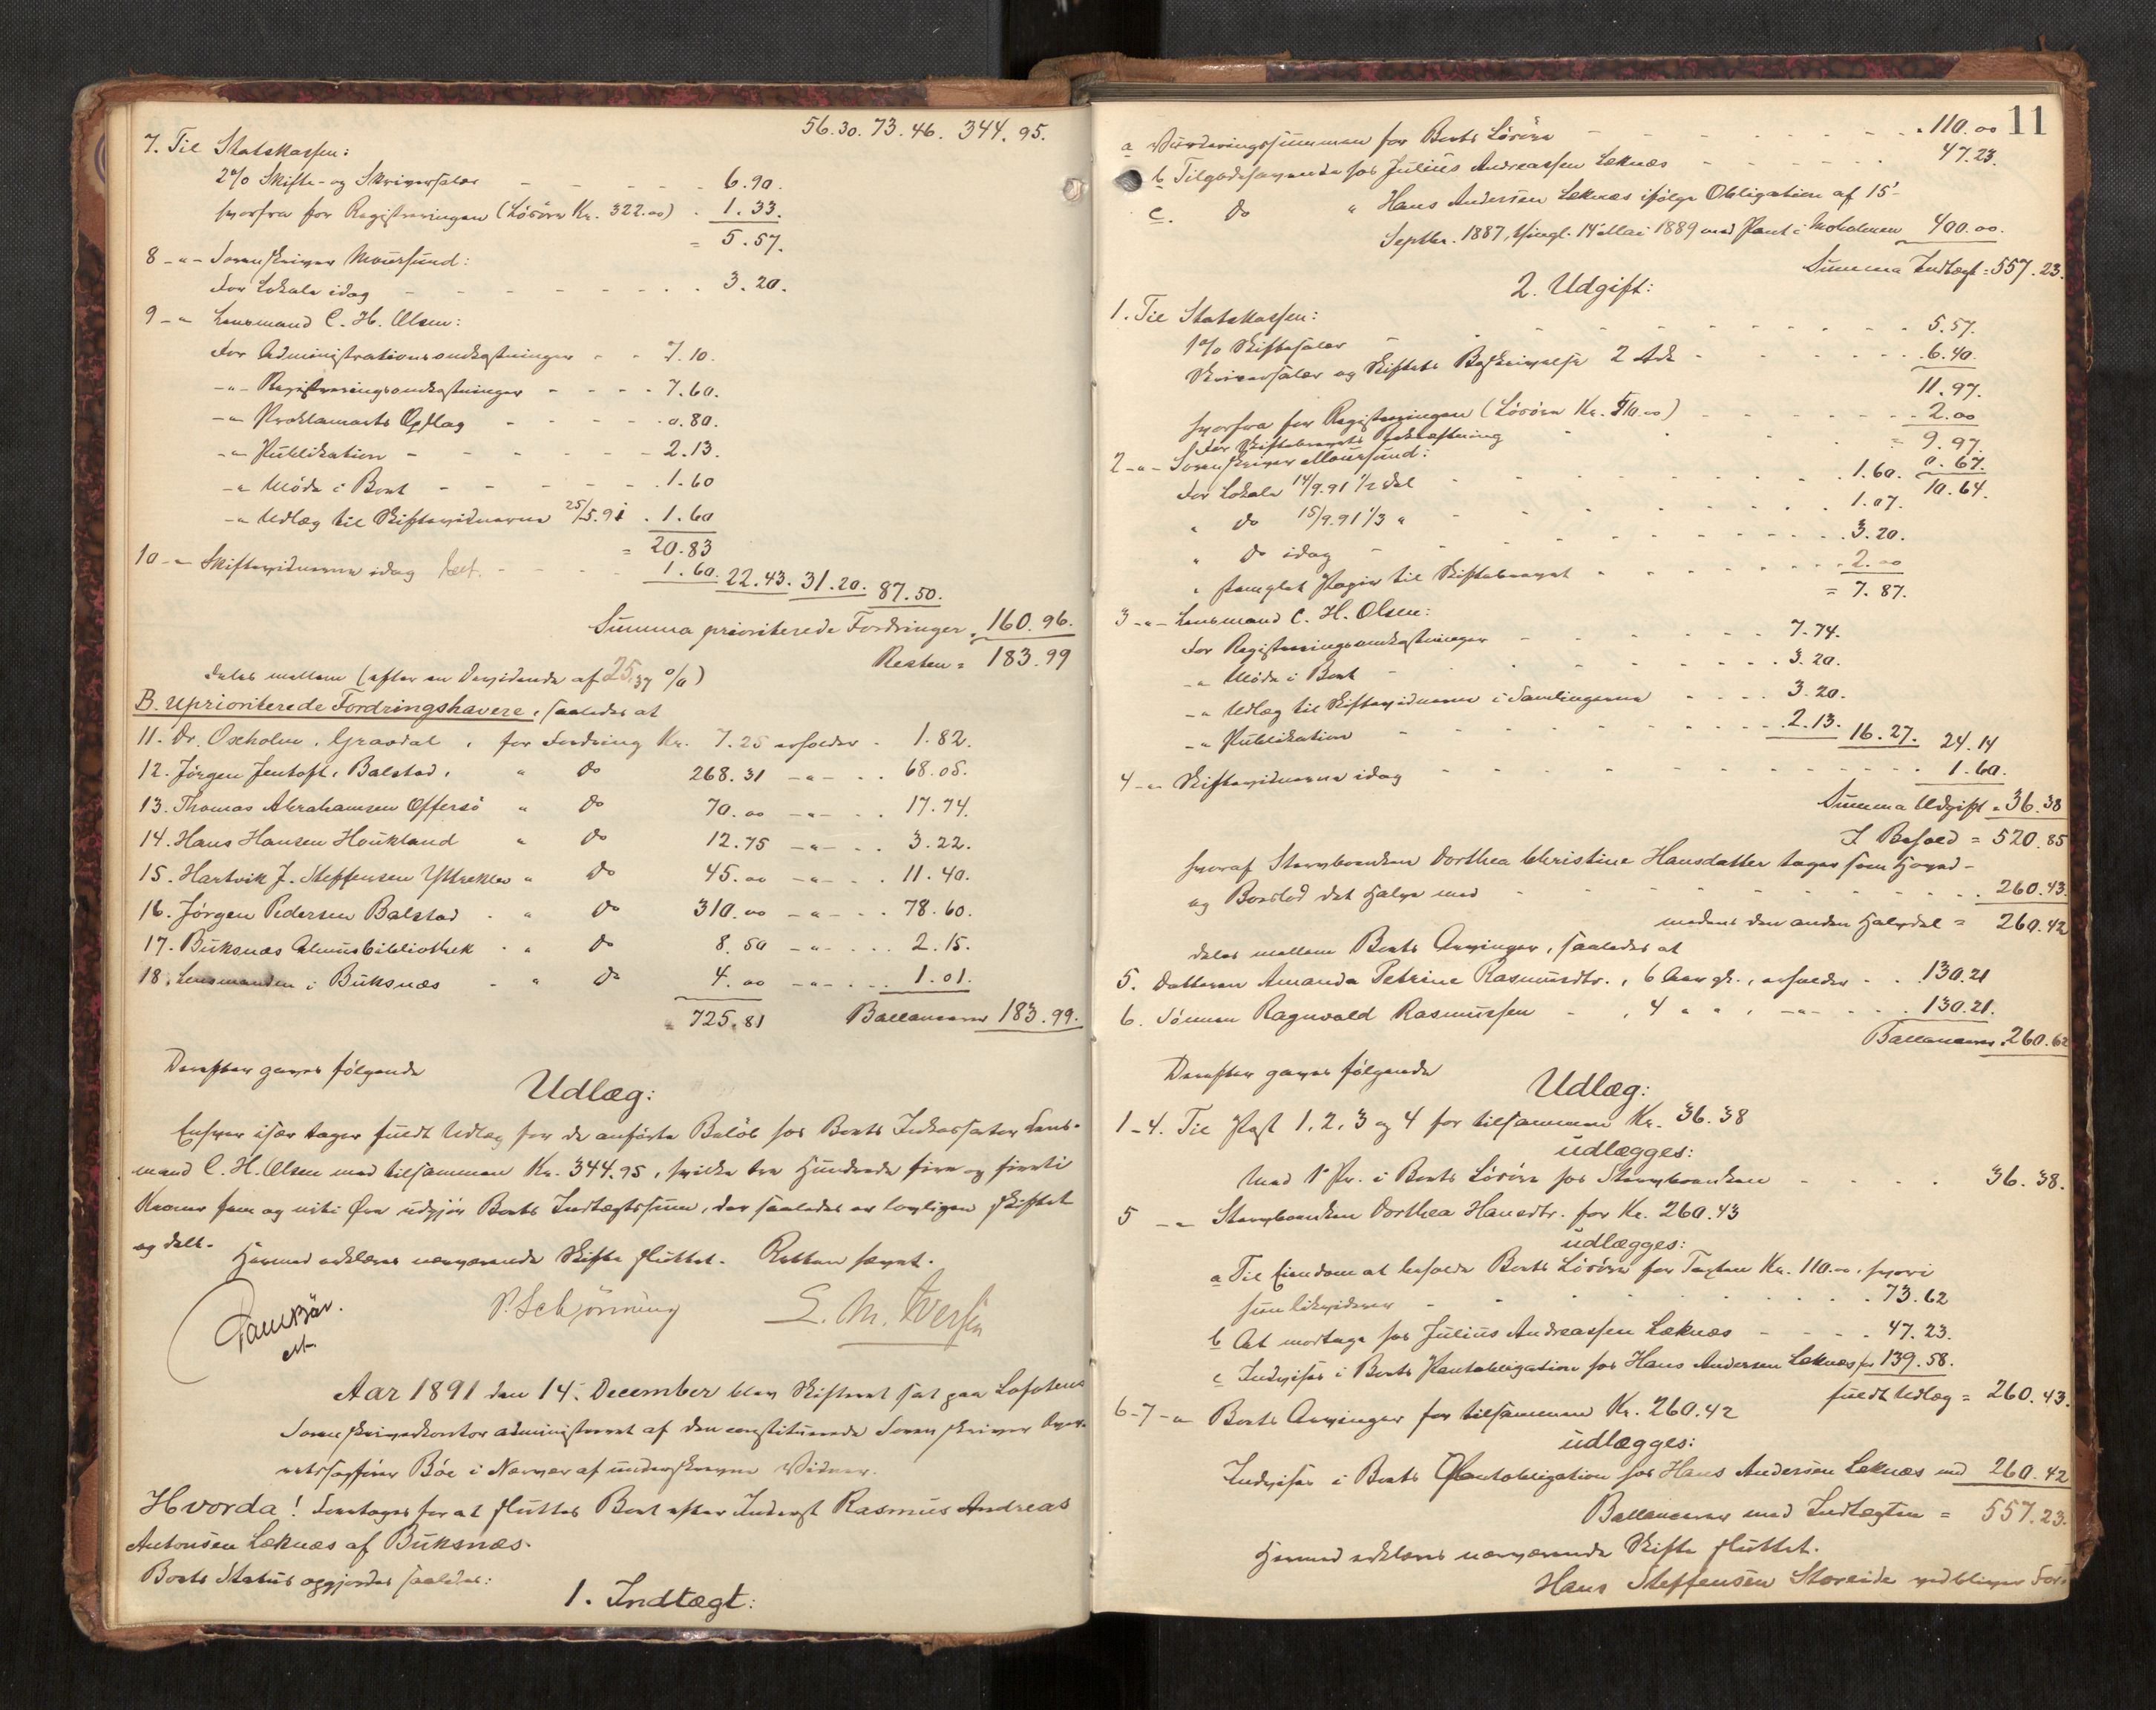 56.30. 73.46. 344.95.
7. Til Statskassen:
2% Skifte- og Skriversalær - - - - - 6.90.
hvorfra for Registreringen (Løsøre Kr. 322.00) . 1.33.
= 5.57.
8 -"- Sorenskriver Moursund:
For Lokale idag - - - - - - - 3.20.
9 -" Lensmand C. H. Olsen:
For Administrationsomkostninger - - 7.10.
-"- Registreringsomkostninger - - - - 7.60.
-" Proklamaets Opslag - - - - - 0.80.
-" Publikation - - - - - - 2.13.
-" Møde i Boet - - - - - - 1.60
-" Udlæg til Skiftevidnerne 25/5.91 . 1.60
= 20.83
10 -" Skiftevidnerne idag - - - - 1.60. 22.43. 31.20. 87.50.
Summa prioriterede Fordringer = 160.96.
Resten = 183.99
deles mellem (efter en Dividende af 25,37 %)
B. Uprioriterede Fordringshavere, saaledes at
11. Dr. Oxholm, Gravdal, for Fordring Kr. 7.25 erholder - 1.82.
12. Jørgen Jentoft, Balstad, " do 268.31 -"- . . 68.05.
13. Thomas Abrahamsen Offersø " do 70.00 -"- . . 17.74.
14. Hans Hansen Houkland " do 12.75 -"- . . 3.22.
15. Hartvik J. Steffensen Yttreklev " do 45.00 -"- . . 11.40.
16. Jørgen Pedersen Balstad - " do 310.00 -"- . . 78.60.
17. Buksnæs Almuebibliothek - " do 8.50 -"- . . 2.15.
18. Lensmanden i Buksnæs - " do 4.00 -"- . . 1.01.
= 725.81 Ballancerer 183.99.
Derefter gaves følgende
Udlæg:
Enhver især tager fuldt Udlæg for de anførte Beløb hos Boets Inkassator Lens-
mand C. H. Olsen med tilsammen Kr. 344.95, hvilke tre Hundrede fire og firti
Kroner fem og niti Øre udgjør Boets Indtægtssum, der saaledes er lovligen skiftet
og delt.
Hermed erklæres nærværende Skifte sluttet. Retten hævet.
P. Schønning E. M. Iversen
Aar 1891 den 14. December blev Skifteret sat paa Lofotens
Sorenskriverkontor administreret af den constituerede Sorenskriver Over-
retssagfører Böe i Nærvær af underskrevne Vidner.
Hvorda! Foretoges for at sluttes Boet efter Inderst Rasmus Andreas
Antonsen Leknæs af Buksnæs.
Boets Status opgjordes saaledes:
1. Indtægt:
11
a Vurderingssummen for Boets Løsøre - - - - - - 110.00
b Tilgodehavende hos Julius Andreassen Leknæs - - - - 47.23.
c. do " Hans Andersen Leknæs ifølge Obligation af 15de
Septbr. 1887, thingl. 14 Mai 1889 med Pant i Moholmen 400.00.
Summa Indtægt = 557.23.
2. Udgift:
1. Til Statskassen:
1% Skiftesalær - - - - - - - 5.57.
Skriversalær og Skiftets Beskrivelse 2 Ark - - - - 6.40.
11.97.
hvorfra for Registreringen (Løsøre Kr. 510.00) - - - - 2.00
= 9.97.
For Skiftebrevets Bekræftning - - - 0.67.
10.64.
2 -"- Sorenskriver Moursund:
For Lokale 14/9.91 1/2 Del - - - - - 1.60.
" do 15/9.91 1/3 " - - - - - 1.07.
" do idag - - - - - - 3.20.
" stemplet Papir til Skiftebrevet - - - - 2.00
= 7.87.
3 -"- Lensmand C. H. Olsen:
For Registreringsomkostninger - - - - 7.74.
-" Møde i Boet - - - - - - 3.20.
-" Udlæg til Skiftevidnerne i Samlingerne - - - 3.20.
-" Publikation - - - - - - 2.13. 16.27. 24.14
4 -"- Skiftevidnerne idag - - - - - - - 1.60.
Summa Udgift = 36.38
I Behold = 520.85
hvoraf Stervboenken Dorthea Christine Hansdatter tages som Hoved-
og Boeslod det Halve med - - - - - 260.43.
medens den anden Halvdel = 260.42
deles mellem Boets Arvinger, saaledes at
5. Datteren Amanda Petrine Rasmusdtr., 6 Aar gl., erholder - . 130.21
6. Sønnen Ragnvald Rasmussen - , 4 " " , -"- - . 130.21.
Ballancerer 260.42
Derefter gaves følgende
Udlæg:
1-4. Til Post 1, 2, 3 og 4 for tilsammen Kr. 36.38
udlægges:
Med 1ste Pr. i Boets Løsøre hos Stervboenken - - - - 36.38.
5 -" Stervboenken Dorthea Hansdtr. for Kr. 260.43
udlægges:
a Til Eiendom at beholde Boets Løsøre for Taxten Kr. 110.00, hvori
hun likviderer - - - - - - 73.62
b At modtage hos Julius Andreassen Leknæs - - - - 47.23.
c Indvises i Boets Pantobligation hos Hans Andersen Leknæs for 139.58.
fuldt Udlæg = 260.43.
6-7 -" Boets Arvinger for tilsammen Kr. 260.42
udlægges:
Indvises i Boets Pantobligation hos Hans Andersen Leknæs med 260.42
Ballancerer med Indtægten = 557.23.
Hermed erklæres nærværende Skifte sluttet.
Hans Steffensen Storeide vedbliver For-